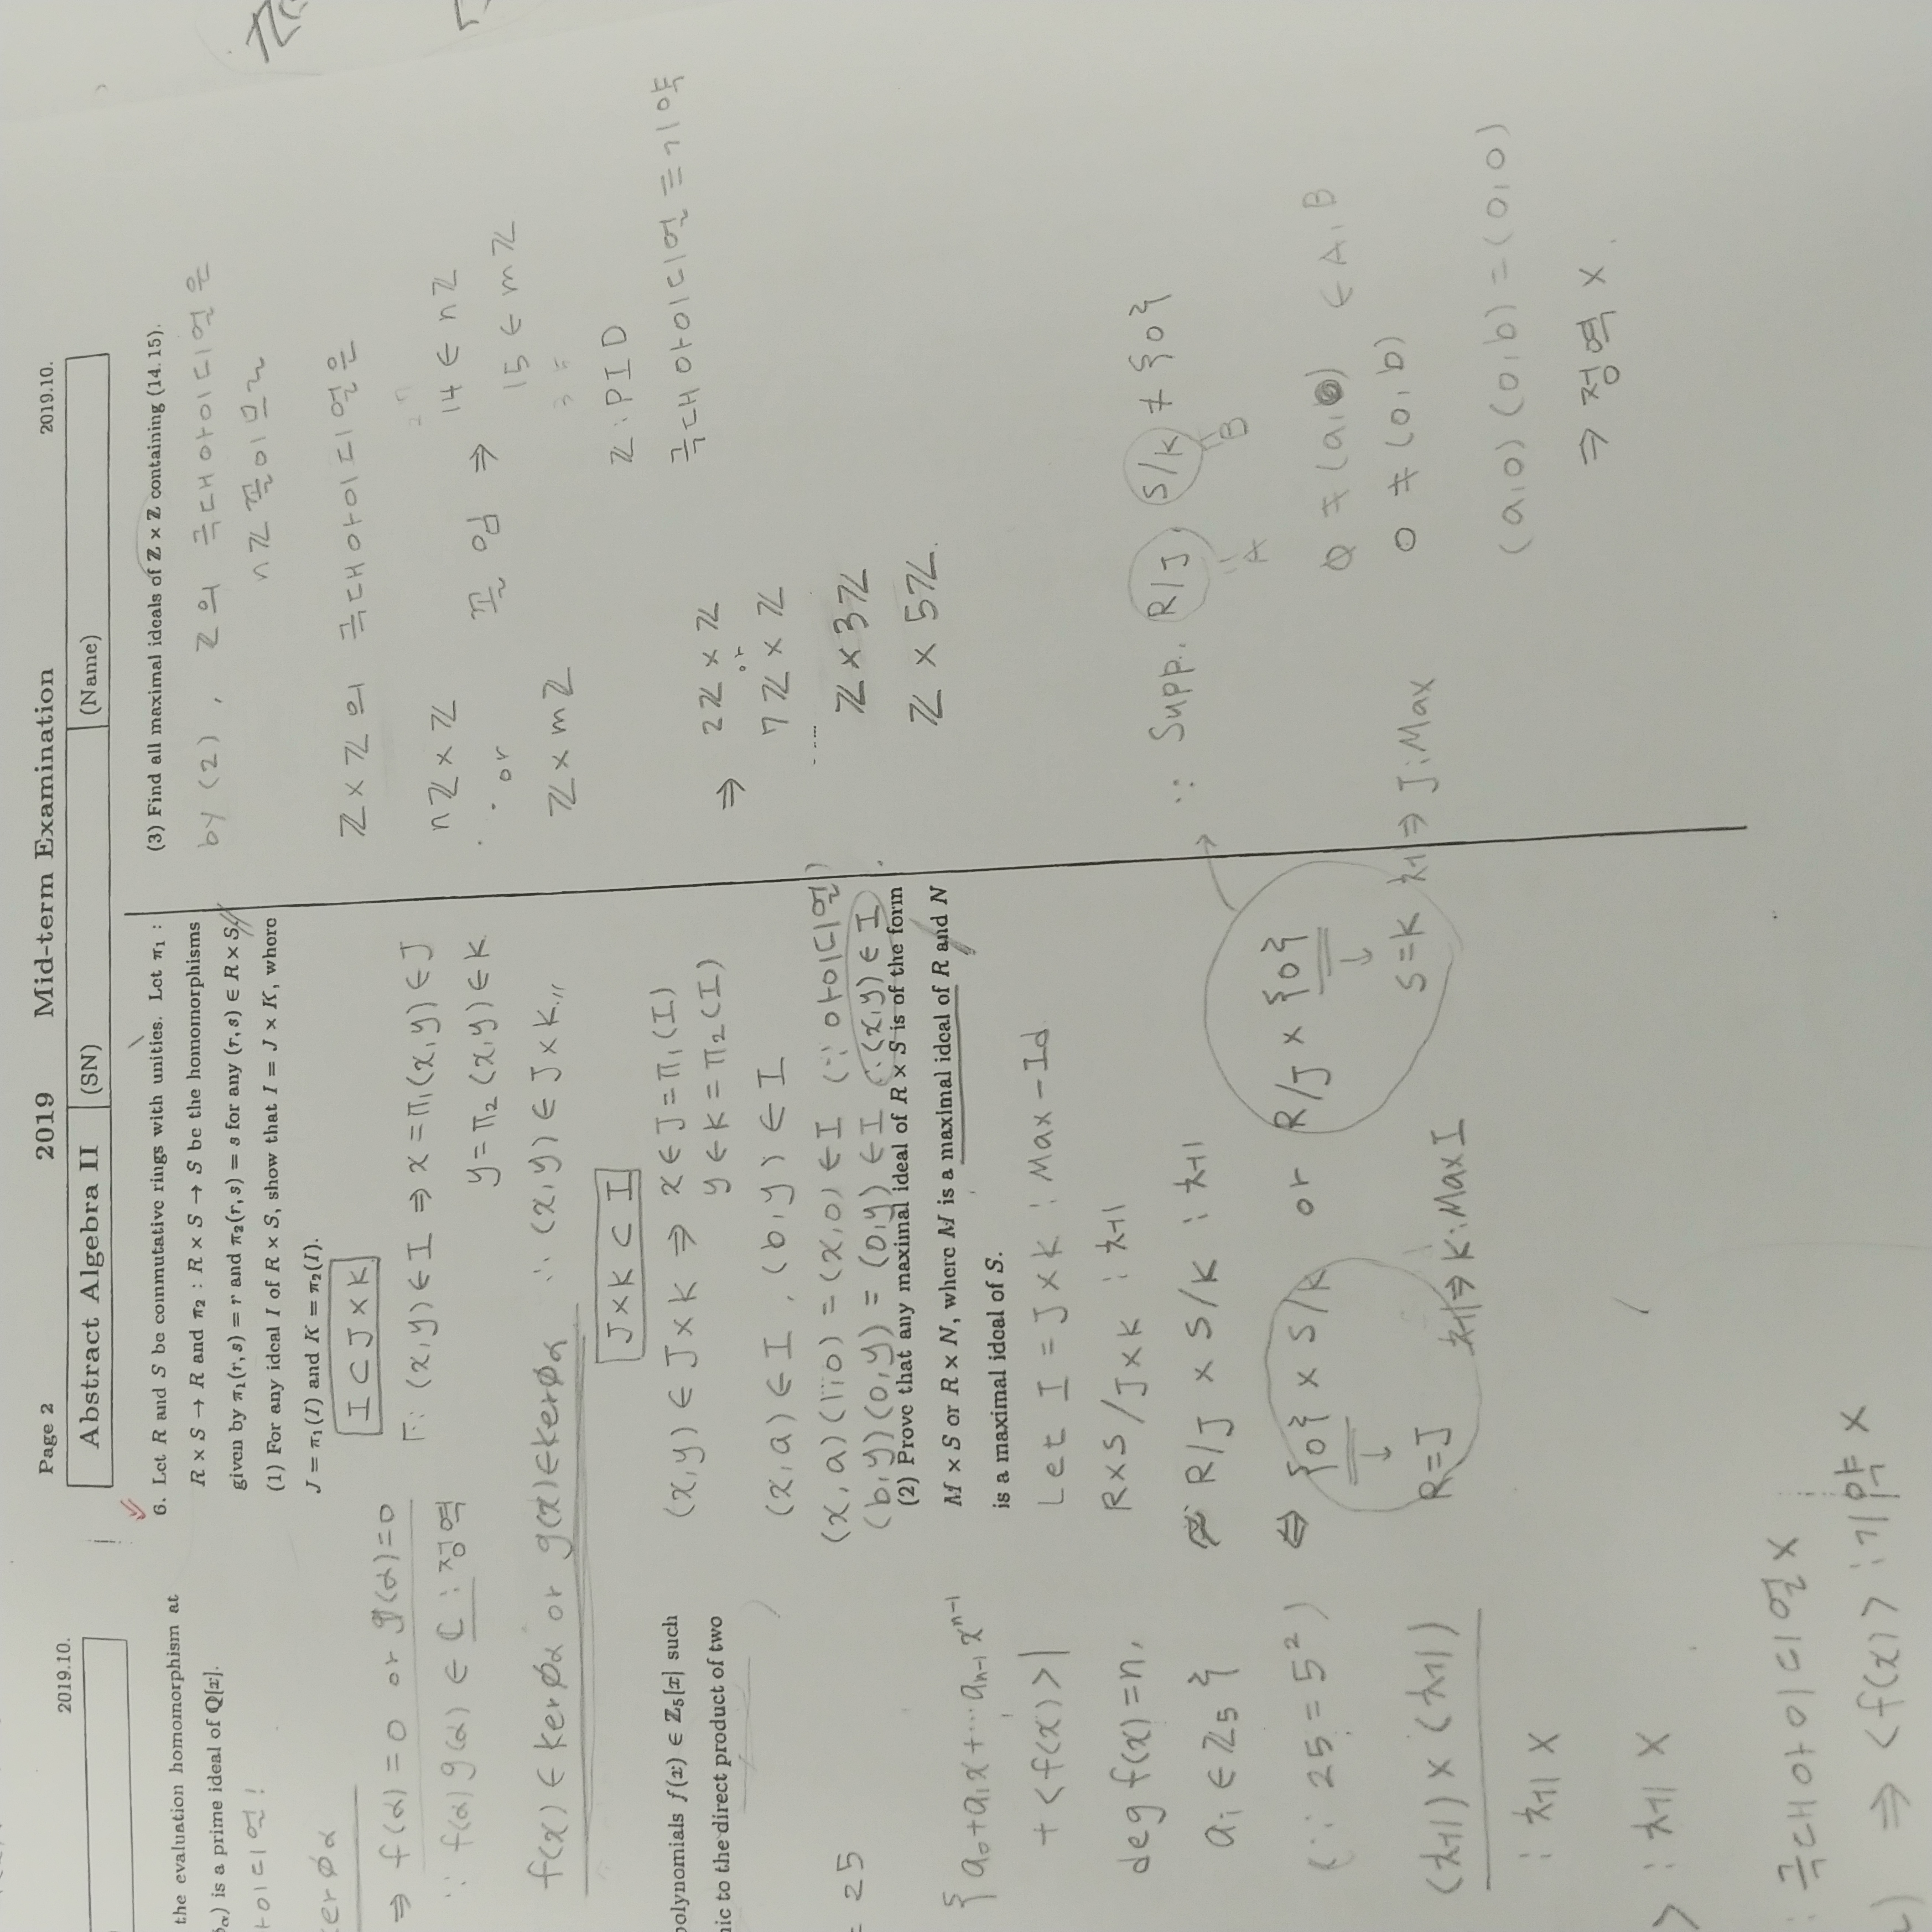 2019.10.
the evaluation homomorphism at
) is a prime ideal of Q[x].
아이디얼!
ker ϕα
⇒ f(α) = 0 or g(α)=0
∵ f(α)g(α) ∈ ℂ : 정역
f(x) ∈ ker ϕα or g(x) ∈ ker ϕα
polynomials f(x) ∈ Z₅[x] such
to the direct product of two
= 25
{ a₀+a₁x+⋯aₙ₋₁xⁿ⁻¹
+ <f(x)> |
deg f(x)=n,
aᵢ ∈ ℤ₅ }
(∵ 25 = 5²)
(체) × (체)
: 체 X
> : 체 X
: 극대아이디얼 X
⇒ <f(x)> : 기약 X
Page 2 2019 Mid-term Examination 2019.10.
Abstract Algebra II (SN) (Name)
6. Let R and S be commutative rings with unities. Let π₁ :
R × S → R and π₂ : R × S → S be the homomorphisms
given by π₁(r, s) = r and π₂(r, s) = s for any (r, s) ∈ R × S.
(1) For any ideal I of R × S, show that I = J × K, where
J = π₁(I) and K = π₂(I).
I ⊂ J × K
∵ (x,y) ∈ I ⇒ x = π₁(x,y) ∈ J
y = π₂(x,y) ∈ K
∴ (x,y) ∈ J × K
J×K ⊂ I
(x,y) ∈ J×K ⇒ x ∈ J = π₁(I)
y ∈ K = π₂(I)
(x,a) ∈ I , (b,y) ∈ I
(x,a)(1,0) = (x,0) ∈ I (∵ 아이디얼)
(b,y)(0,y) = (0,y) ∈ I ∴ (x,y) ∈ I
(2) Prove that any maximal ideal of R × S is of the form
M × S or R × N, where M is a maximal ideal of R and N
is a maximal ideal of S.
Let I = J×K : Max-Id
R×S/J×K : 체
≈ R/J × S/K : 체
⇔ {0} × S/K or R/J × {0}
↓ ↓
R=J 체⇒ K:Max I S=K 체⇒ J:Max
(3) Find all maximal ideals of Z × Z containing (14, 15).
by (2) , ℤ의 극대아이디얼은
nℤ 꼴이므로
ℤ×ℤ의 극대아이디얼은
nℤ × ℤ
or
ℤ × mℤ
꼴임 ⇒
2 7
14 ∈ nℤ
15 ∈ mℤ
3 5
ℤ : PID
극대아이디얼 = 기약
⇒ 2ℤ × ℤ
or
7ℤ × ℤ
ℤ × 3ℤ
ℤ × 5ℤ.
∵ Supp. R/J, S/K ≠ {0}
A B
0 ≠ (a,0) ∈ A, B
0 ≠ (0,b)
(a,0)(0,b) = (0,0)
⇒ 정역 X.